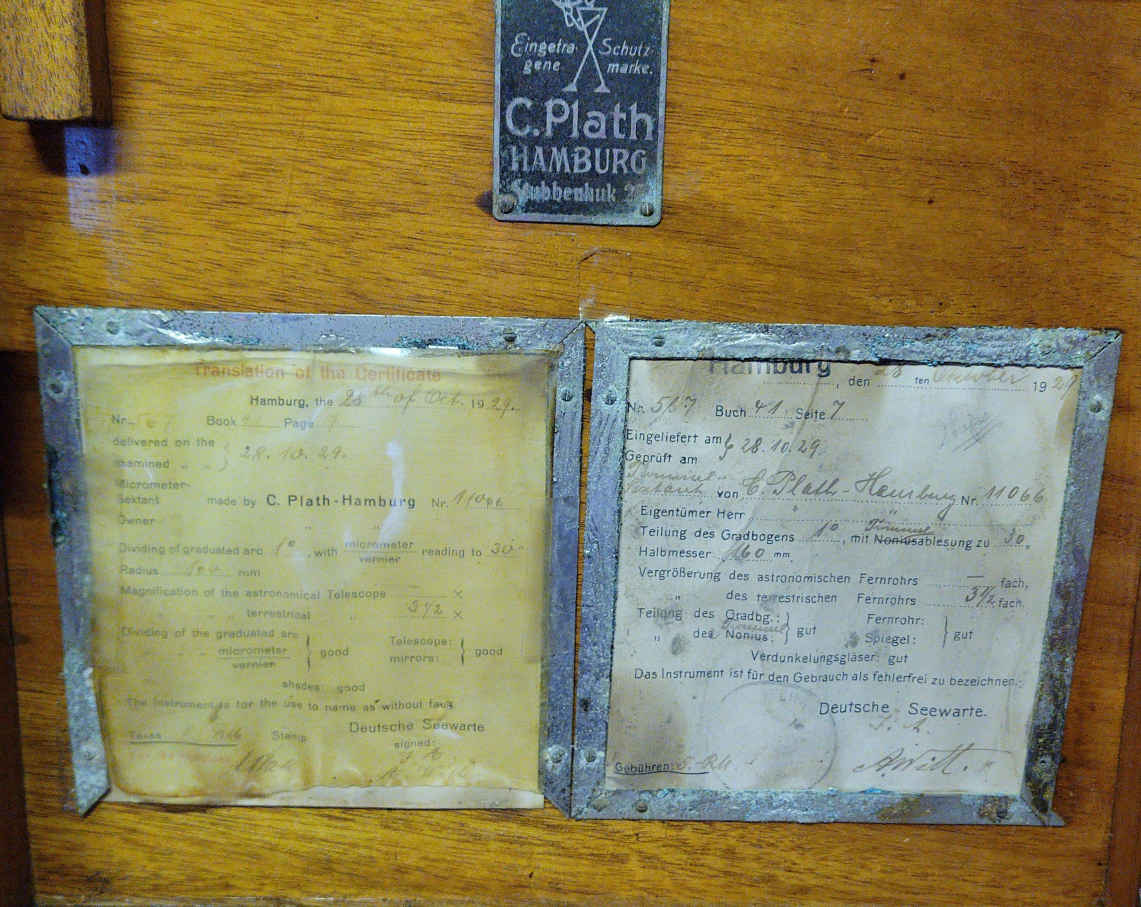 Eingetra- Schutz-
gene marke.
C.Plath
HAMBURG
Stubbenhuk 25
Translation of the Certificate
Hamburg, the 28th of Oct. 1929.
Nr. 567 Book 41 Page 7
delivered on the
examined " " } 28. 10. 29.
Micrometer-
Sextant made by C. Plath-Hamburg Nr. 11066
Owner " "
Dividing of graduated arc 1° , with micrometer reading to 30"
vernier
Radius mm
Magnification of the astronomical Telescope — x
" " terrestrial " 3½ x
Dividing of the graduated arc
" " micrometer } good
vernier
Telescope:
mirrors: } good
shades: good
The instrument is for the use to name as without fault
Deutsche Seewarte
Taxes Stamp signed:
Hamburg
, den 28 ten Oktober 1929
Nr. 567 Buch 41 Seite 7
Eingeliefert am
Geprüft am } 28. 10. 29.
Trommel-
Sextant von C. Plath-Hamburg Nr. 11066
Eigentümer Herr "
Teilung des Gradbogens 1° , mit Trommel Noniusablesung zu 30"
Halbmesser 160 mm
Vergrößerung des astronomischen Fernrohrs — fach,
" des terrestrischen Fernrohrs 3½ fach.
Teilung des Gradbg.:
" des Trommel Nonius: } gut
Fernrohr:
Spiegel: } gut
Verdunkelungsgläser: gut
Das Instrument ist für den Gebrauch als fehlerfrei zu bezeichnen.
Deutsche Seewarte.
I. A.
Gebühren: A. Witt.